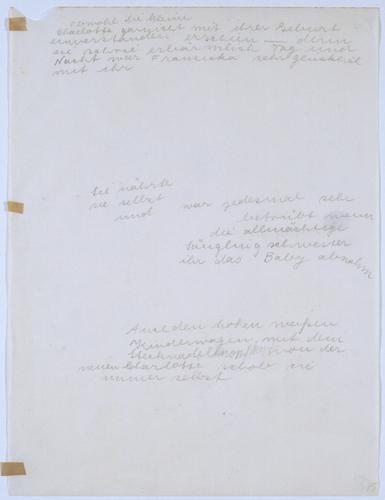 obwohl die kleine
Charlotte garnicht mit ihrer Geburt
einverstanden erschien — denn
sie schrie erbärmlich Tag und
Nacht war Franciska sehr glücklich
mit ihr
Sie nährte
sie selbst war jedesmal sehr
und betrübt wenn
die allmächtige
Säuglingschwester
ihr das Baby abnahm
Auch den hohen weißen
Kinderwagen mit dem
Stecknadelknopf von der
neuen Charlotte schob sie
immer selbst